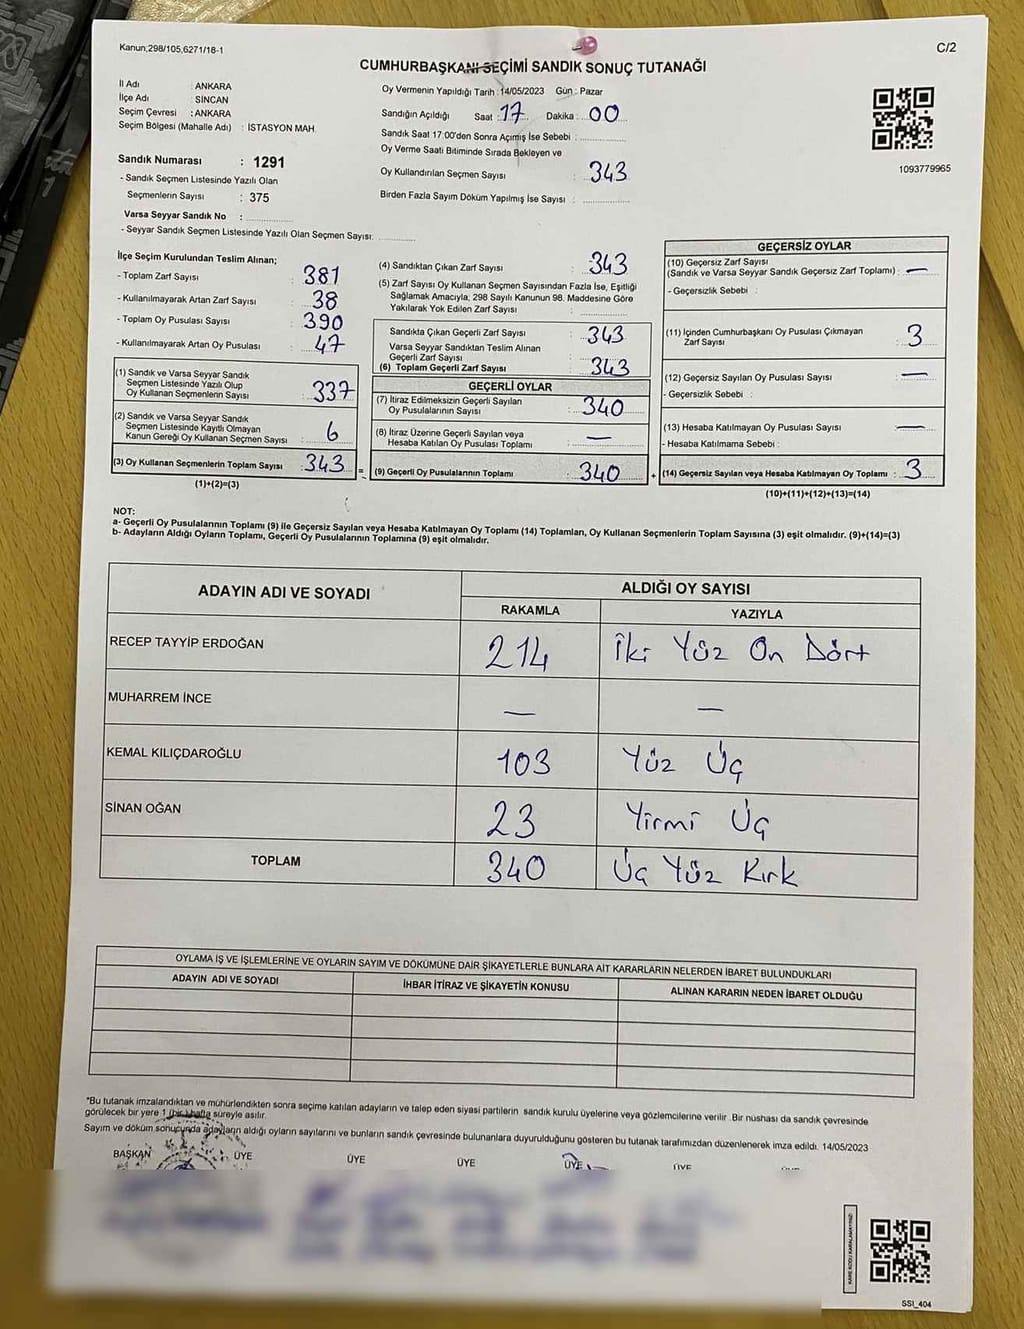 Kanun;298/105,6271/18-1
C/2
CUMHURBAŞKANI SEÇİMİ SANDIK SONUÇ TUTANAĞI
İl Adı : ANKARA
İlçe Adı : SİNCAN
Seçim Çevresi : ANKARA
Seçim Bölgesi (Mahalle Adı) : İSTASYON MAH.
Sandık Numarası : 1291
- Sandık Seçmen Listesinde Yazılı Olan
Seçmenlerin Sayısı : 375
Varsa Seyyar Sandık No :
- Seyyar Sandık Seçmen Listesinde Yazılı Olan Seçmen Sayısı:
Oy Vermenin Yapıldığı Tarih : 14/05/2023 Gün : Pazar
Sandığın Açıldığı Saat : 17 Dakika : 00
Sandık Saat 17:00'den Sonra Açımış İse Sebebi :
Oy Verme Saati Bitiminde Sırada Bekleyen ve
Oy Kullandırılan Seçmen Sayısı : 343
Birden Fazla Sayım Döküm Yapılmış İse Sayısı :
1093779965
İlçe Seçim Kurulundan Teslim Alınan;
- Toplam Zarf Sayısı : 381
- Kullanılmayarak Artan Zarf Sayısı : 38
- Toplam Oy Pusulası Sayısı : 390
- Kullanılmayarak Artan Oy Pusulası : 47
(1) Sandık ve Varsa Seyyar Sandık
Seçmen Listesinde Yazılı Olup
Oy Kullanan Seçmenlerin Sayısı : 337
(2) Sandık ve Varsa Seyyar Sandık
Seçmen Listesinde Kayıtlı Olmayan
Kanun Gereği Oy Kullanan Seçmen Sayısı : 6
(3) Oy Kullanan Seçmenlerin Toplam Sayısı : 343
(1)+(2)=(3)
(4) Sandıktan Çıkan Zarf Sayısı : 343
(5) Zarf Sayısı Oy Kullanan Seçmen Sayısından Fazla İse, Eşitliği
Sağlamak Amacıyla; 298 Sayılı Kanunun 98. Maddesine Göre
Yakılarak Yok Edilen Zarf Sayısı :
Sandıkta Çıkan Geçerli Zarf Sayısı : 343
Varsa Seyyar Sandıktan Teslim Alınan
Geçerli Zarf Sayısı
(6) Toplam Geçerli Zarf Sayısı : 343
GEÇERLİ OYLAR
(7) İtiraz Edilmeksizin Geçerli Sayılan
Oy Pusulalarının Sayısı : 340
(8) İtiraz Üzerine Geçerli Sayılan veya
Hesaba Katılan Oy Pusulası Toplamı : —
= (9) Geçerli Oy Pusulalarının Toplamı : 340
GEÇERSİZ OYLAR
(10) Geçersiz Zarf Sayısı
(Sandık ve Varsa Seyyar Sandık Geçersiz Zarf Toplamı) : —
- Geçersizlik Sebebi :
(11) İçinden Cumhurbaşkanı Oy Pusulası Çıkmayan
Zarf Sayısı : 3
(12) Geçersiz Sayılan Oy Pusulası Sayısı : —
- Geçersizlik Sebebi :
(13) Hesaba Katılmayan Oy Pusulası Sayısı : —
- Hesaba Katılmama Sebebi :
+ (14) Geçersiz Sayılan veya Hesaba Katılmayan Oy Toplamı : 3
(10)+(11)+(12)+(13)=(14)
NOT:
a- Geçerli Oy Pusulalarının Toplamı (9) ile Geçersiz Sayılan veya Hesaba Katılmayan Oy Toplamı (14) Toplamları, Oy Kullanan Seçmenlerin Toplam Sayısına (3) eşit olmalıdır. (9)+(14)=(3)
b- Adayların Aldığı Oyların Toplamı, Geçerli Oy Pusulalarının Toplamına (9) eşit olmalıdır.
ADAYIN ADI VE SOYADI ALDIĞI OY SAYISI
RAKAMLA YAZIYLA
RECEP TAYYİP ERDOĞAN 214 İki Yüz On Dört
MUHARREM İNCE — —
KEMAL KILIÇDAROĞLU 103 Yüz Üç
SİNAN OĞAN 23 Yirmi Üç
TOPLAM 340 Üç Yüz Kırk
OYLAMA İŞ VE İŞLEMLERİNE VE OYLARIN SAYIM VE DÖKÜMÜNE DAİR ŞİKAYETLERLE BUNLARA AİT KARARLARIN NELERDEN İBARET BULUNDUKLARI
ADAYIN ADI VE SOYADI İHBAR İTİRAZ VE ŞİKAYETİN KONUSU ALINAN KARARIN NEDEN İBARET OLDUĞU
*Bu tutanak imzalandıktan ve mühürlendikten sonra seçime katılan adayların ve talep eden siyasi partilerin sandık kurulu üyelerine veya gözlemcilerine verilir. Bir nüshası da sandık çevresinde
görülecek bir yere 1 (bir) hafta süreyle asılır.
Sayım ve döküm sonucunda adayların aldığı oyların sayılarını ve bunların sandık çevresinde bulunanlara duyurulduğunu gösteren bu tutanak tarafımızdan düzenlenerek imza edildi. 14/05/2023
BAŞKAN ÜYE ÜYE ÜYE ÜYE ÜYE
KARE KODU KARALAMAYINIZ!
SSI_404